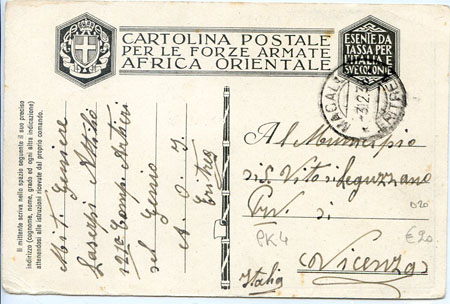 CARTOLINA POSTALE
PER LE FORZE ARMATE
AFRICA ORIENTALE
ESENTE DA
TASSA PER
L'ITALIA E
SVE COLONIE
Il mittente scriva nello spazio seguente il suo preciso
indirizzo (cognome, nome, grado ed ogni altra indicazione)
attenendosi alle istruzioni ricevute dal proprio comando.
Mit. Geniere
Attilio
Comp. Artieri
del Genio
A. O. I.
Eritrea
Al Municipio
di S. Vito
Prv. di
Vicenza
Italia
PK4
D20
€20